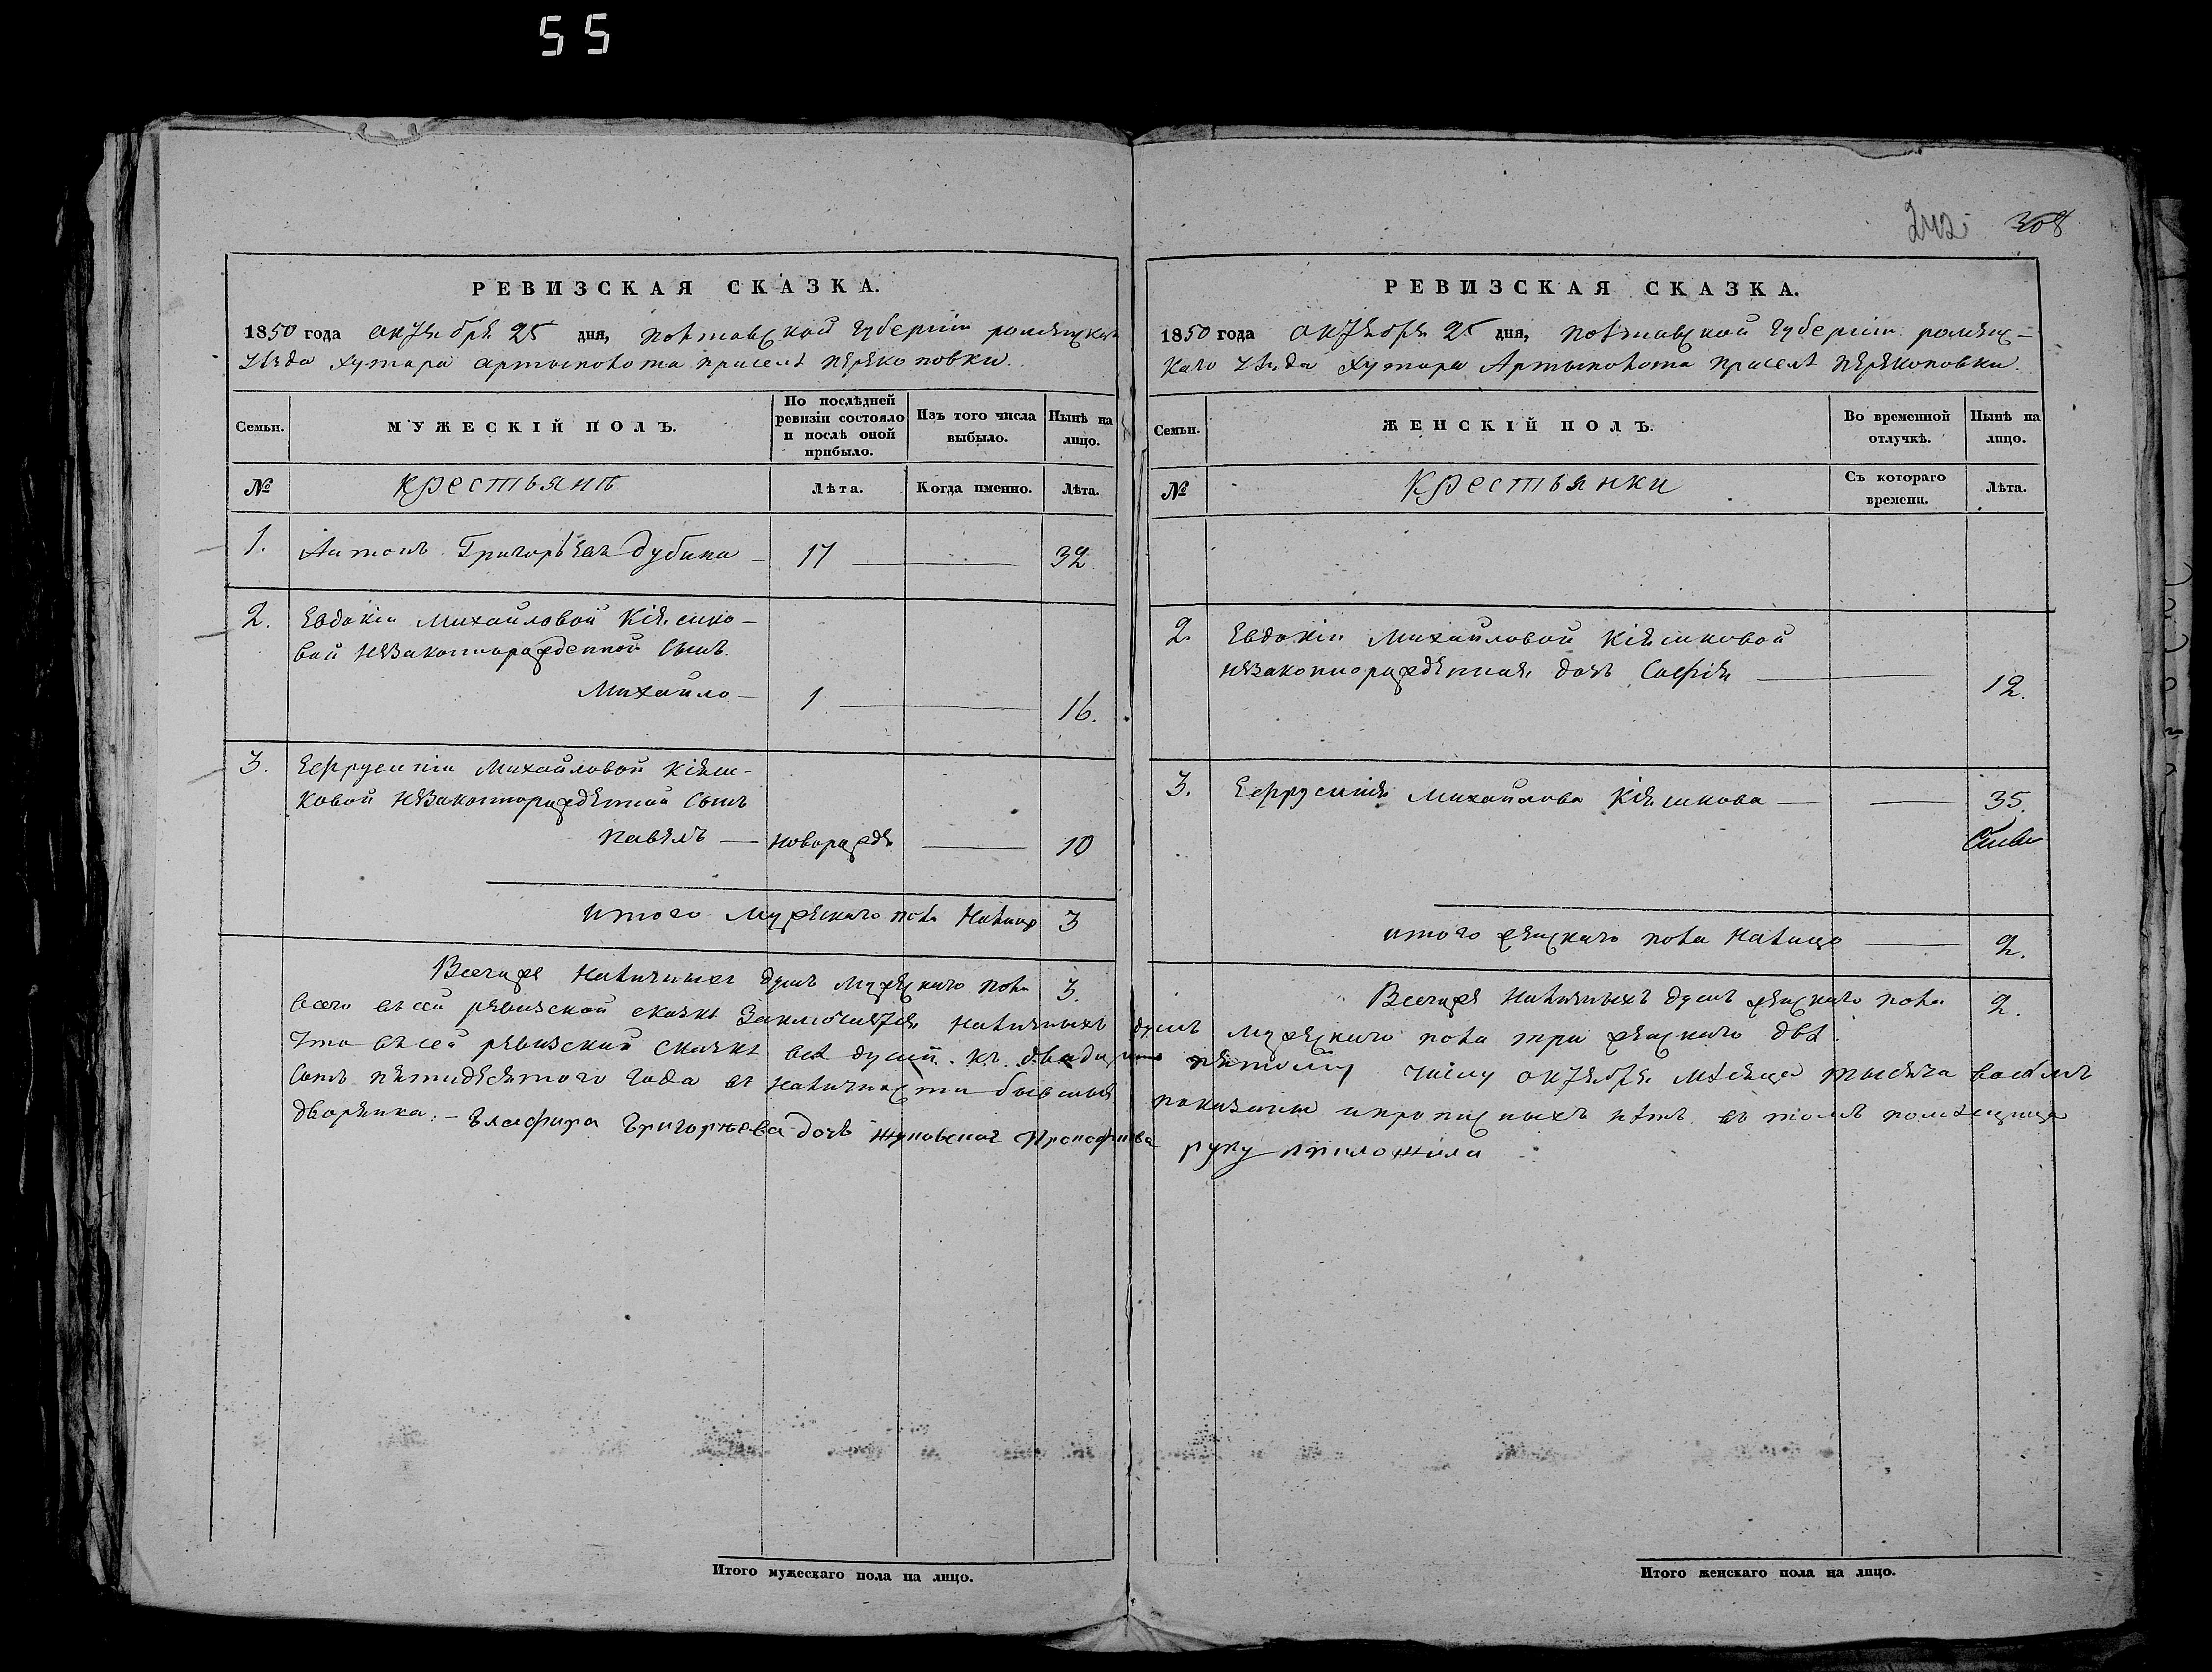 55
242 308
РЕВИЗСКАЯ СКАЗКА.
1850 года октября 25 дня, Полтавской Губернии роменскаго
уезда хутара артыполота приселѣ пѣрѣкоповки.
Семьи.
МУЖЕСКІЙ ПОЛЪ.
По послѣдней ревизіи состояло и послѣ оной прибыло.
Изъ того числа выбыло.
Нынѣ на лицо.
№
Крестьянъ
Лѣта.
Когда именно.
Лѣта.
1. Антонъ Григорьевъ Дубина 17 32.
2. Евдокіи Михайловой Кіяшко-
вой незаконнорожденной Сынъ
Михайло 1 16.
3. Ефрусиніи Михайловой Кіяш-
ковой незаконнорожденной Сынъ
Павелъ новорожде 10
Итого мужескаго пола налицо 3
Всегоже наличныхъ душъ мужескаго пола 3.
РЕВИЗСКАЯ СКАЗКА.
1850 года октября 25 дня, Полтавской Губерніи роменс-
каго уезда хутара Артыполота приселѣ пѣрѣкоповки.
Семьи.
ЖЕНСКІЙ ПОЛЪ.
Во временной отлучкѣ.
Нынѣ на лицо.
№
Крестьянки
Съ котораго времени.
Лѣта.
2. Евдокіи Михайловой Кіяшковой
незаконнорожденная дочь Софія 12.
3. Ефрусинія Михайлова Кіяшкова 35.
итого женскаго пола налицо 2.
Всегоже наличныхъ душъ женскаго пола 2.
всего въ сей ревизской сказкѣ заключается наличныхъ душъ мужескаго пола три женскаго двѣ.
Что въ сей ревизской сказкѣ всѣ души къ двадцать пятому числу октября мѣсяца тысяча восѣмъ
сотъ пятидесятого года въ наличности бывшыя показаны и прописныхъ нѣтъ въ томъ помѣщица
дворянка. – Глафира Григорьева дочь Жуковская руку приложила
Итого мужескаго пола на лицо.
Итого женскаго пола на лицо.